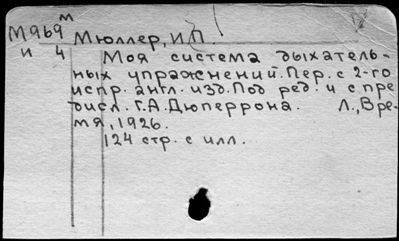 М969 м Мюллер, И.П.
и 4
Моя система дыхатель-
ных упражнений. Пер. с 2-го
испр. англ. изд. Под ред. и с пре
дисл. Г.А. Дюперрона. Л., Вре-
мя, 1926.
124 стр. с илл.